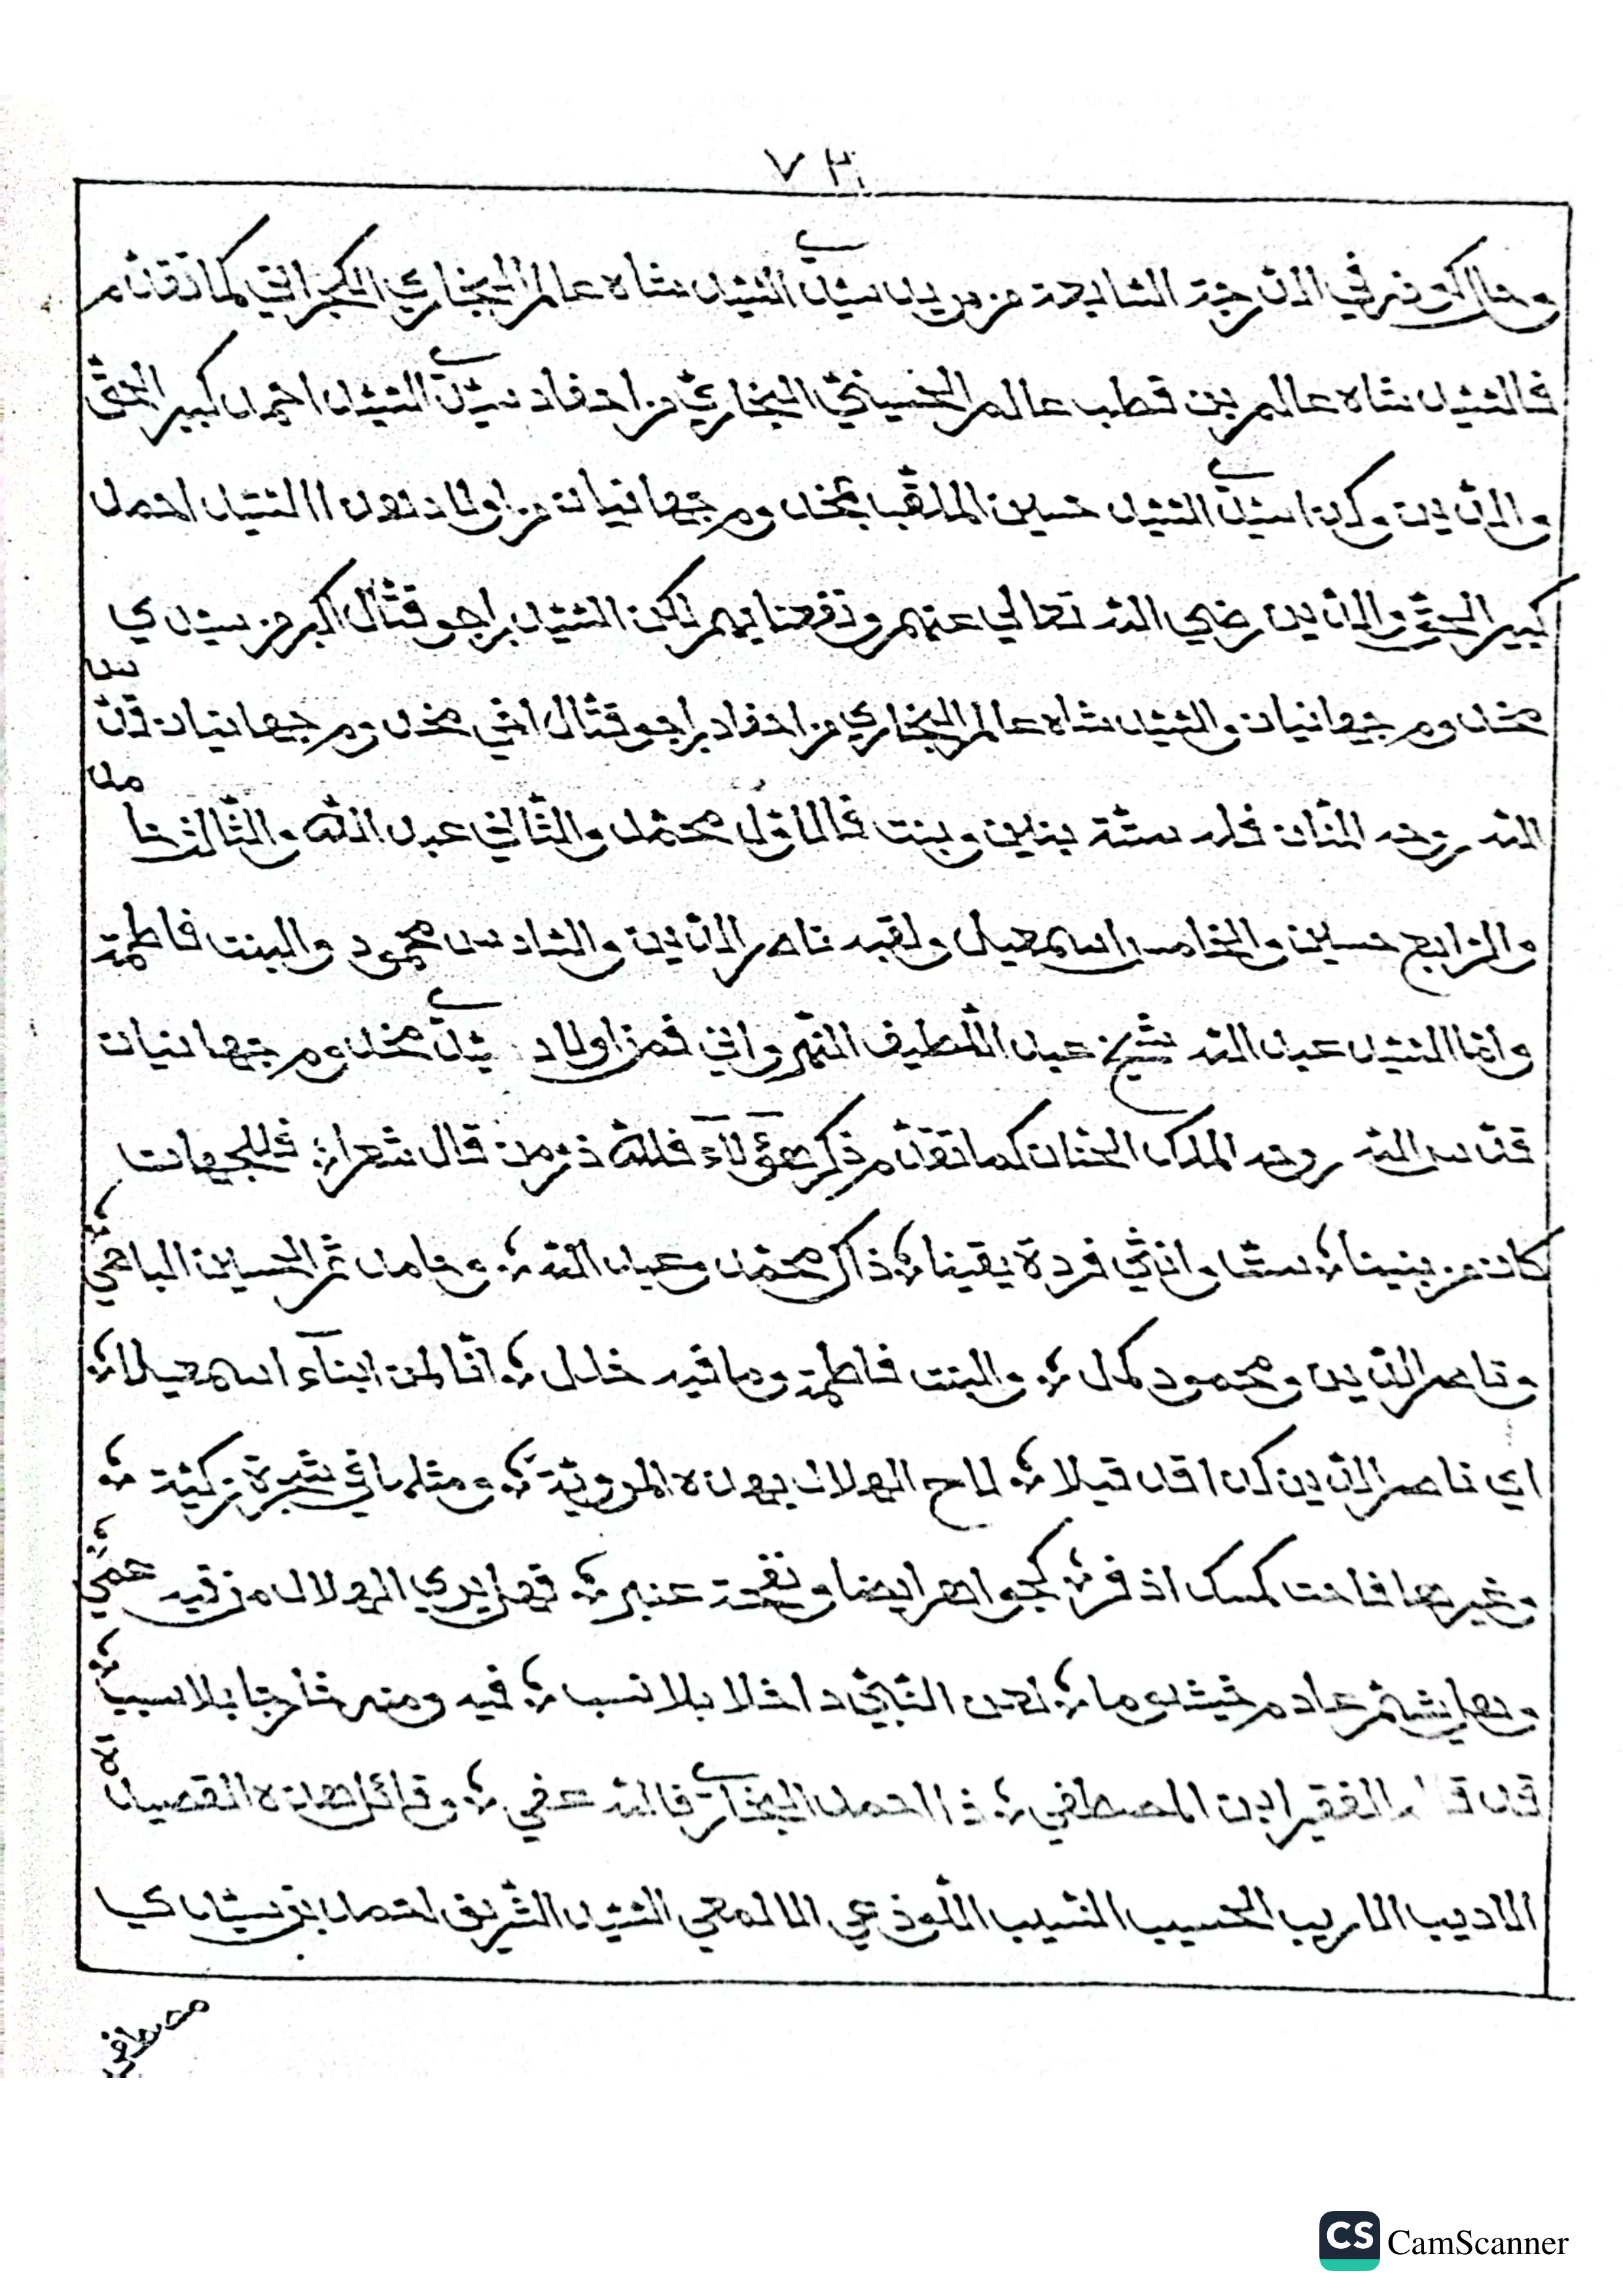 ٧٣
وهذا لكونه في الدرجة السابعة من مريد سيدي السيد شاه عالم البخاري الكجراتي كما تقدم
فالسيد شاه عالم بن قطب عالم الحسيني البخاري من احفاد سيدي السيد احمد كبير الحق
والدين وكذا سيدي السيد حسين الملقب بمخدوم جهانيان من اولاد السيد احمد
كبير الحق والدين رضي الله تعالى عنهم ونفعنا بهم لكن السيد براجو قتال اكبر من سيدي
مخدوم جهانيان والسيد شاه عالم البخاري من احفاد براجو قتال اخي مخدوم جهانيان قدس
الله روحه المنان فله ستة بنين وبنت فالاول محمد والثاني عبد الله والثالث حامد
والرابع حسين والخامس اسمعيل ولقبه ناصر الدين والسادس محمود والبنت فاطمة
واما السيد عبد الله شيخ عبد اللطيف النهرواني فمن اولاد سيدي مخدوم جهانيان
قدس الله روحه الملك الحنان كما تقدم ذكر هؤلاء فلله در من قال شعرا فللجهات
كان من بنينا ستا وانثي فردة يقينا ذاك محمد وعبد الله وحامد ثم الحسين الباهي
وناصر الدين ومحمود كمل والبنت فاطمة وما فيه خلل انا لمن ابناء اسمعيلا
اي ناصر الدين كذا قد قيلا لاح الهلال بهذه المروية ومثلها في شجرة زكية
وغيرها فاحت كمسك اذفر كجواهر ايضا ونفحة عنبر فهل يري الهلال من فيه عمي
وهل يشم عادم خيشوما لعن النبي داخلا بلا نسب فيه ومنه خارجا بلا سبب
قد الفقير ابن المصطفي ذا احمد البخاري فالله عفي وقائل هذه القصيدة
الاديب الاريب الحسيب النسيب اللوذعي الالمعي السيد الشريف احمد بن سيدي
مصطفى
CS CamScanner